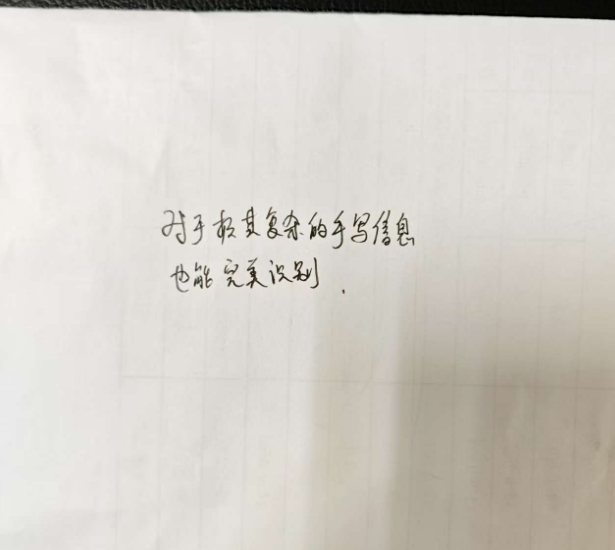 对于极其复杂的手写信息
也能完美识别.